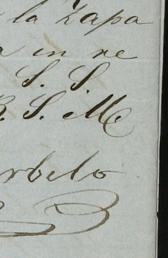 la Zapa
in re
S. S.
B S. M
rbelo